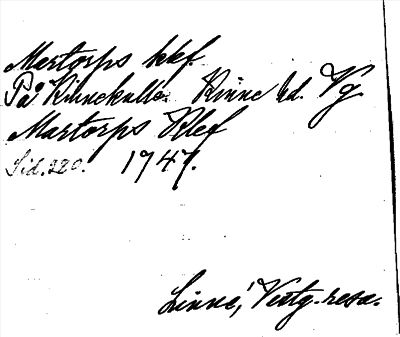 Martorps kkf.
På Kinnekulle. Kinne hd. Vg
Martorps Klef
Sid. 280. 1747.
Linné, Vestg. resa.